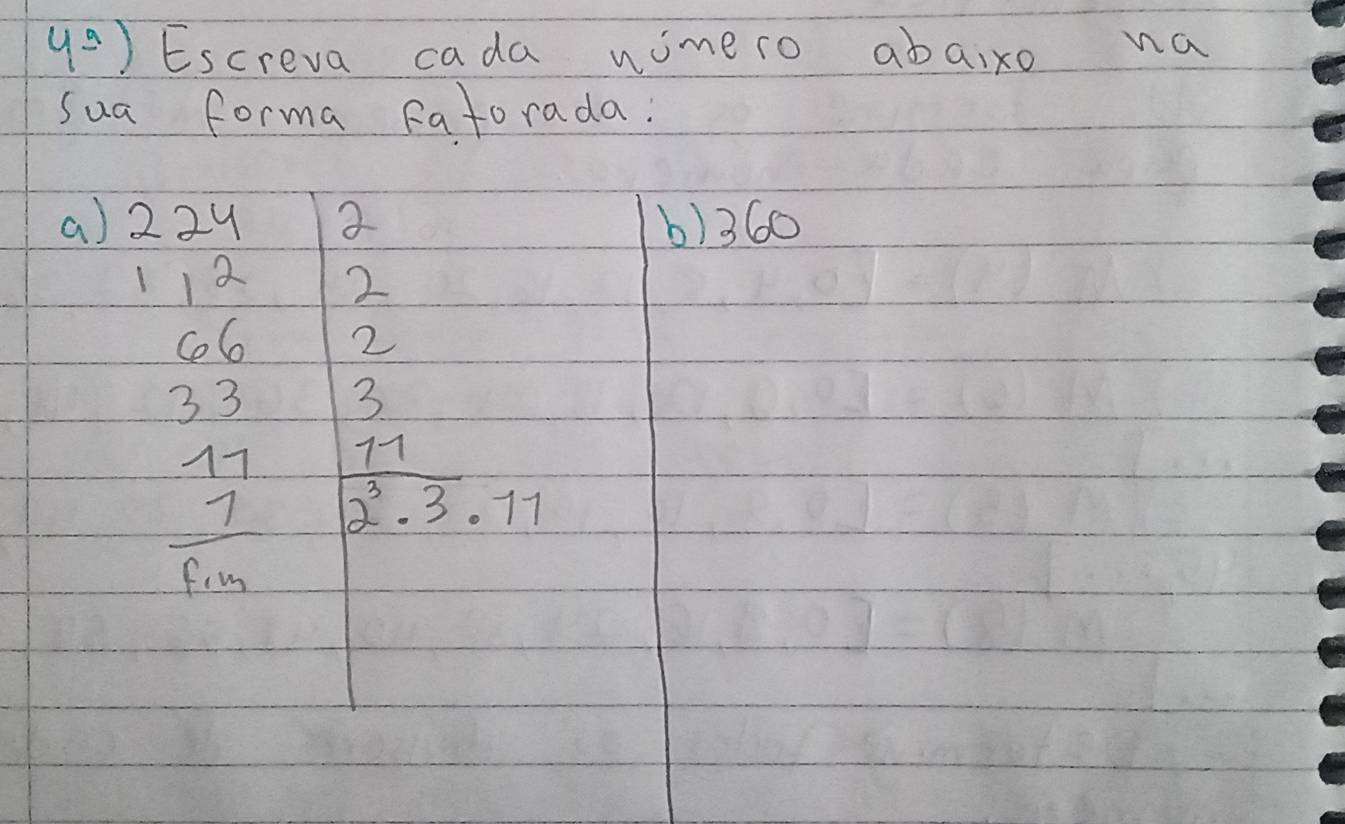 4ª) Escreva cada número abaixo na
sua forma fatorada:
a) 224 | 2
112 | 2
66 | 2
33 | 3
11 | 11
1 | 2³.3.11
fim
b) 360